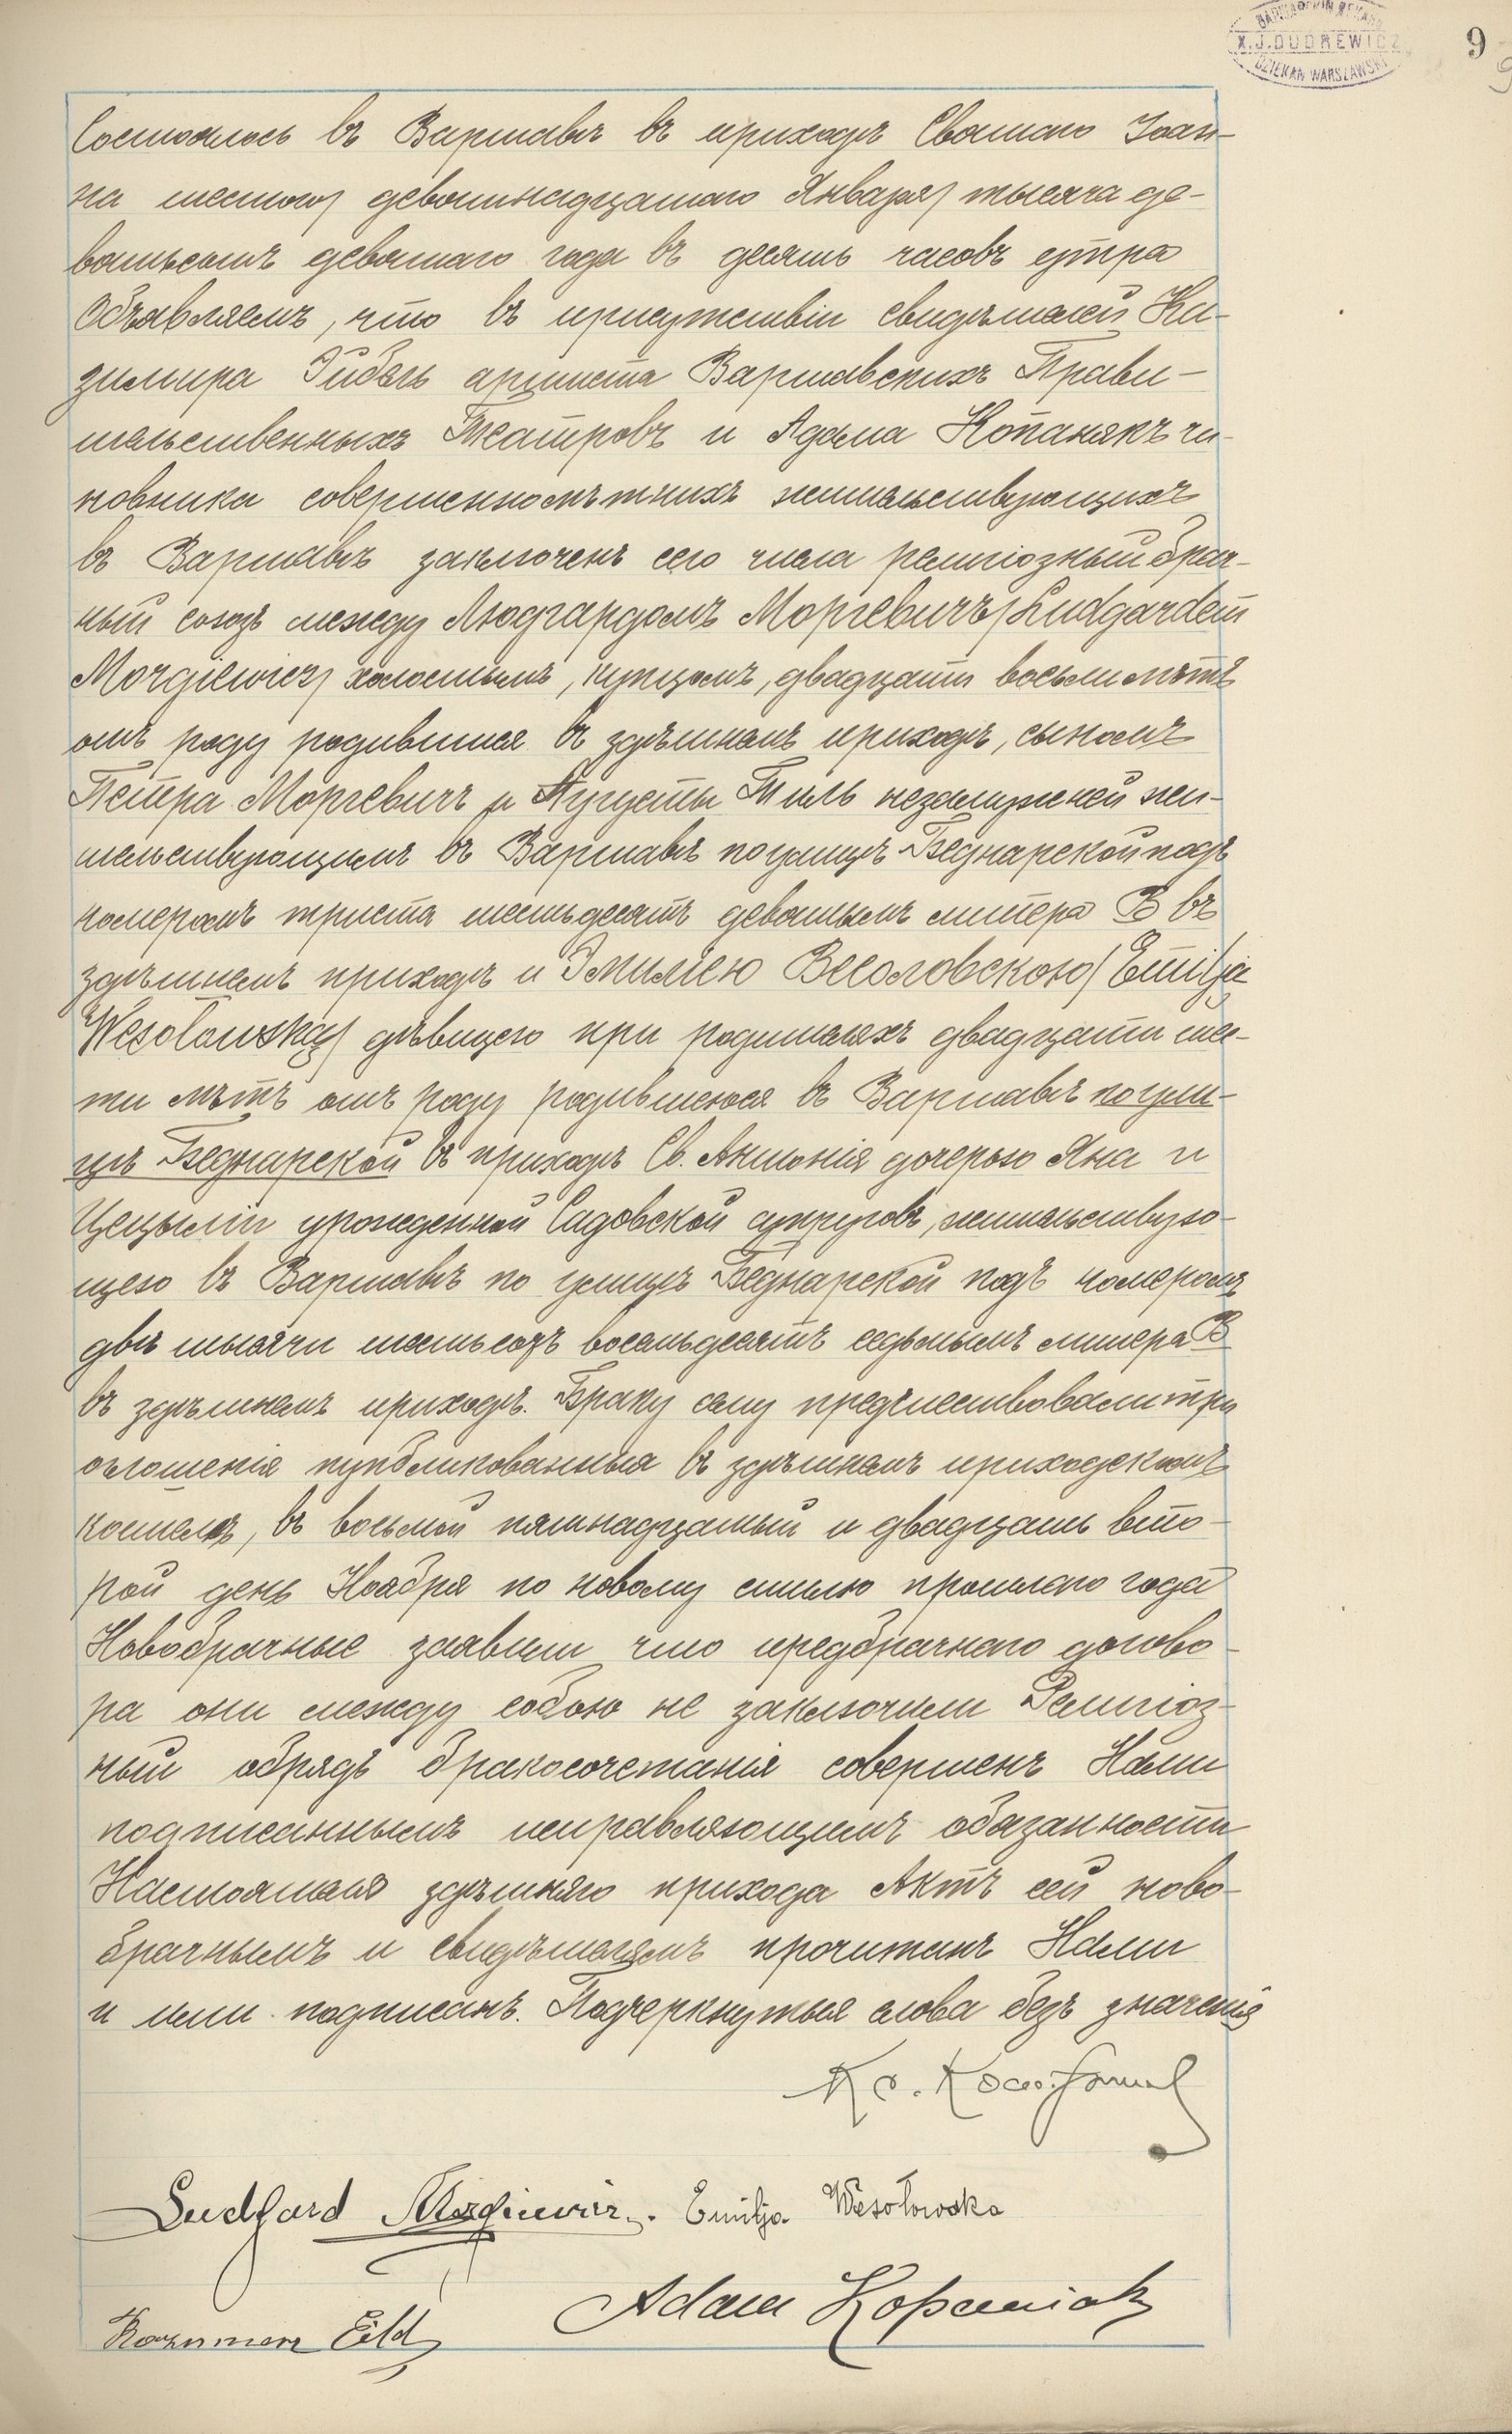 X.J.DUDREWICZ
DZIEKAN WARSZAWSKI
9
Состоялось въ Варшавѣ въ приходѣ Святаго Іоан-
на шестого/ девятнадцатаго Января/ тысяча де-
вятьсотъ девятаго года въ десять часовъ утра
Объявляемъ, что въ присутствіи свидѣтелей Ка-
зимира артиста Варшавскихъ Прави-
тельственныхъ Театровъ и Адама Копанякъ чи-
новника совершеннолѣтнихъ жительствующихъ
въ Варшавѣ заключенъ сего числа религіозный брач-
ный союзъ между Людгардомъ Моргевичъ/Ludgardem
Morgiewicz/ холостымъ, купцомъ, двадцати восьми лѣтъ
отъ роду родившимся въ здѣшнемъ приходѣ, сыномъ
Петра Моргевичъ и Августы Тиль незамужней жи-
тельствующимъ въ Варшавѣ по улицѣ Беднарской подъ
номеромъ триста шестьдесятъ девятымъ литера В въ
здѣшнемъ приходѣ и Эмиліею Весоловскою/Emilją
Wesołowską/ дѣвицею при родителяхъ двадцати шес-
ти лѣтъ отъ роду родившеюся въ Варшавѣ по ули-
цѣ Беднарской въ приходѣ Св. Антонія дочерью Яна и
Цецыліи урожденной Садовской супруговъ, жительствую-
щею въ Варшавѣ по улицѣ Беднарской подъ номеромъ
двѣ тысячи шестьсотъ восемьдесятъ седьмымъ литера В
въ здѣшнемъ приходѣ. Браку сему предшествовали три
оглошенія публикованныя въ здѣшнемъ приходскомъ
костелѣ, въ восьмой пятнадцатый и двадцать вто-
рой день Ноября по новому стилю прошлаго года
Новобрачные заявили что предбрачнаго догово-
ра они между собою не заключили Религіоз-
ный обрядъ бракосочетанія совершенъ Нами
подписаннымъ исправляющимъ обязанности
Настоятеля здѣшняго прихода Актъ сей ново-
брачнымъ и свидѣтелямъ прочитанъ Нами
и ими подписанъ. Подчеркнутыя слова безъ значенія
Кс.
Ludgard Morgiewicz. Emilja Wesołowska
Adam Kopaniak